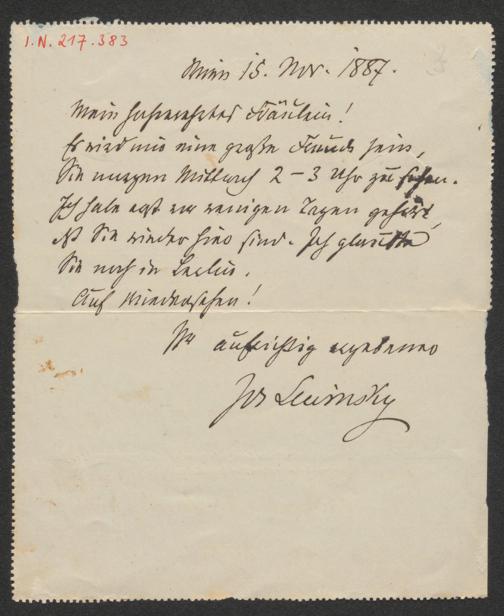 I.N. 217.383
Wien 15. Nov. 1887.
Mein hochverehrtes Fräulein!
Es wird mir eine große Freude sein,
Sie morgen Mittwoch 2 – 3 Uhr zu sehen.
Ich habe erst vor wenigen Tagen gehört,
daß Sie wieder hier sind. Ich glaubte
Sie noch in Berlin.
Auf Wiedersehen!
Ihr aufrichtig ergebener
Jos Lewinsky